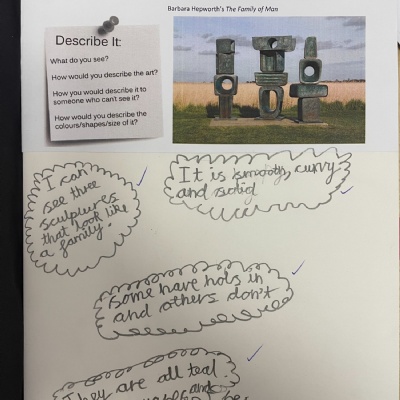 Barbara Hepworth's The Family of Man
Describe It:
What do you see?
How would you describe the art?
How would you describe it to
someone who can't see it?
How would you describe the
colours/shapes/size of it?
I can
see three
sculptures
that look like
a family.
It is smooth, curvy
and solid
some have hols in
and others don't
They are all teal.
and